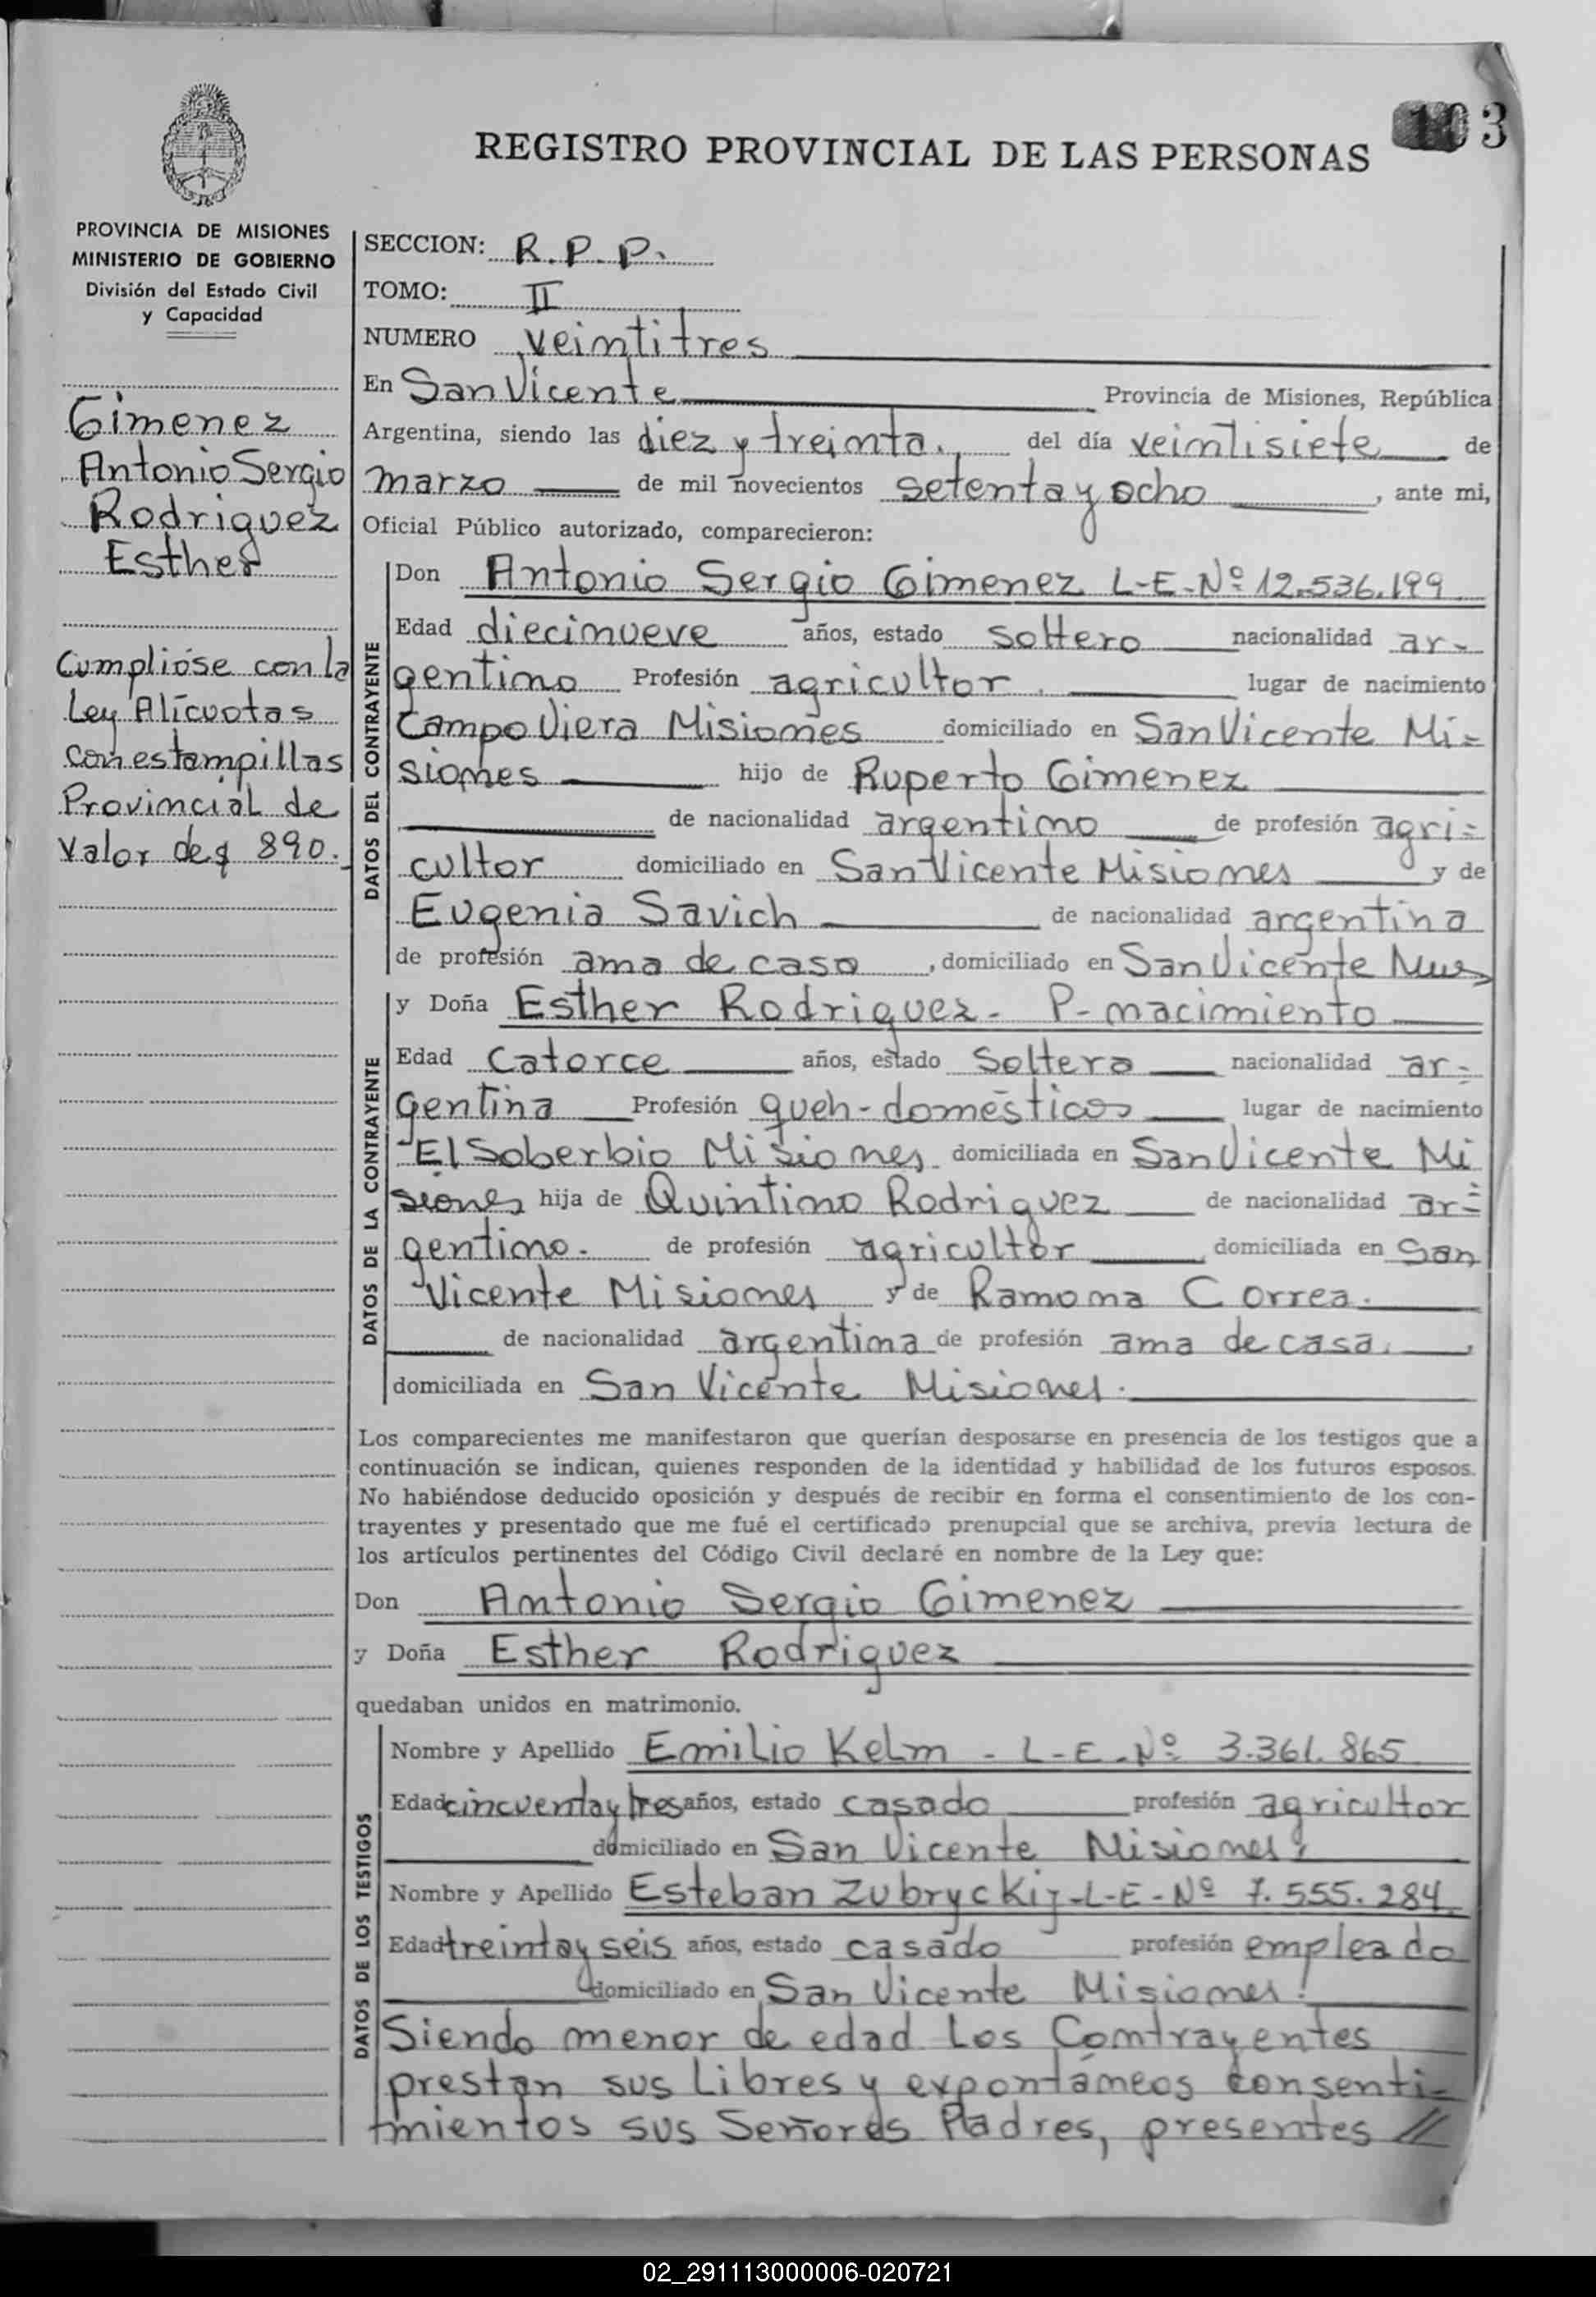 103
REGISTRO PROVINCIAL DE LAS PERSONAS
PROVINCIA DE MISIONES
MINISTERIO DE GOBIERNO
División del Estado Civil
y Capacidad
Gimenez
Antonio Sergio
Rodriguez
Esther
Cumplióse con la
Ley Alícuotas
con estampillas
Provincial de
valor de $ 890.
SECCION: R.P.P.
TOMO: II
NUMERO veintitres
En San Vicente Provincia de Misiones, República
Argentina, siendo las diez y treinta. del día veintisiete de
marzo de mil novecientos setenta y ocho, ante mi,
Oficial Público autorizado, comparecieron:
DATOS DEL CONTRAYENTE
Don Antonio Sergio Gimenez L-E-Nº 12.536.199
Edad diecinueve años, estado soltero nacionalidad ar-
gentino Profesión agricultor. lugar de nacimiento
Campo Viera Misiones domiciliado en San Vicente Mi=
siones hijo de Ruperto Gimenez
de nacionalidad argentino de profesión agri=
cultor domiciliado en San Vicente Misiones y de
Eugenia Savich de nacionalidad argentina
de profesión ama de casa, domiciliado en San Vicente Mnes
DATOS DE LA CONTRAYENTE
y Doña Esther Rodriguez - P- nacimiento
Edad Catorce años, estado Soltera nacionalidad ar=
gentina Profesión queh-domésticos lugar de nacimiento
El Soberbio Misiones domiciliada en San Vicente Mi
siones hija de Quintino Rodriguez de nacionalidad ar=
gentino. de profesión agricultor, domiciliada en San
Vicente Misiones y de Ramona Correa.
de nacionalidad argentina de profesión ama de casa.,
domiciliada en San Vicente Misiones.
Los comparecientes me manifestaron que querían desposarse en presencia de los testigos que a
continuación se indican, quienes responden de la identidad y habilidad de los futuros esposos.
No habiéndose deducido oposición y después de recibir en forma el consentimiento de los con-
trayentes y presentado que me fué el certificado prenupcial que se archiva, previa lectura de
los artículos pertinentes del Código Civil declaré en nombre de la Ley que:
Don Antonio Sergio Gimenez
y Doña Esther Rodriguez
quedaban unidos en matrimonio.
DATOS DE LOS TESTIGOS
Nombre y Apellido Emilio Kelm - L-E-Nº 3.361.865
Edad cincuenta y tres años, estado casado profesión agricultor
domiciliado en San Vicente Misiones.
Nombre y Apellido Esteban Zubryckij-L-E-Nº 7.555.284
Edad treinta y seis años, estado casado profesión empleado
domiciliado en San Vicente Misiones.
Siendo menor de edad Los Contrayentes
prestan sus Libres y expontáneos consenti-
mientos sus Señores Padres, presentes //
02_291113000006-020721